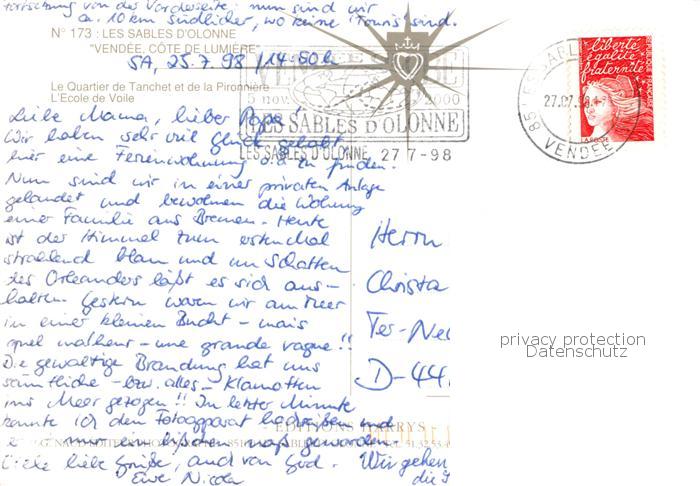 Fortsetzung von der Vorderseite: nun sind wir
ca. 10 km südlicher, wo keine Touris sind.
N° 173 : LES SABLES D'OLONNE
"VENDÉE, CÔTE DE LUMIÈRE"
SA, 25.7.98 / 14.50 h
Le Quartier de Tanchet et de la Pironnière
L'Ecole de Voile
VENDEE GLOBE
5 nov. 2000
LES SABLES D'OLONNE
LES SABLES D'OLONNE 27 7-98
liberté
égalité
fraternité
LA POSTE
27.07.98
85 LES SABLES
VENDEE
Liebe Mama, lieber Papa!
Wir haben sehr viel Glück gehabt
hier eine Ferienwohnung o.ä. zu finden.
Nun sind wir in einer privaten Anlage
gelandet und bewohnen die Wohnung
einer Familie aus Bremen. Heute
ist der Himmel zum ersten Mal
strahlend blau und im Schatten
des Orleanders läßt es sich aus-
halten. Gestern waren wir am Meer
in einer kleinen Bucht - mais
quel malheur - une grande vague!!
Die gewaltige Brandung hat uns
sämtliche - bzw. alles - Klamotten
ins Meer gezogen!! In letzter Minute
konnte ich den Fotoapparat hochreißen und
nur ein bißchen naß geworden
liebe Grüße, auch von Gerd. Wir gehen
Eure Nicola die
Herrn
Christa
Tes-Nec
D-44
EDITIONS HARRYS
privacy protection
Datenschutz